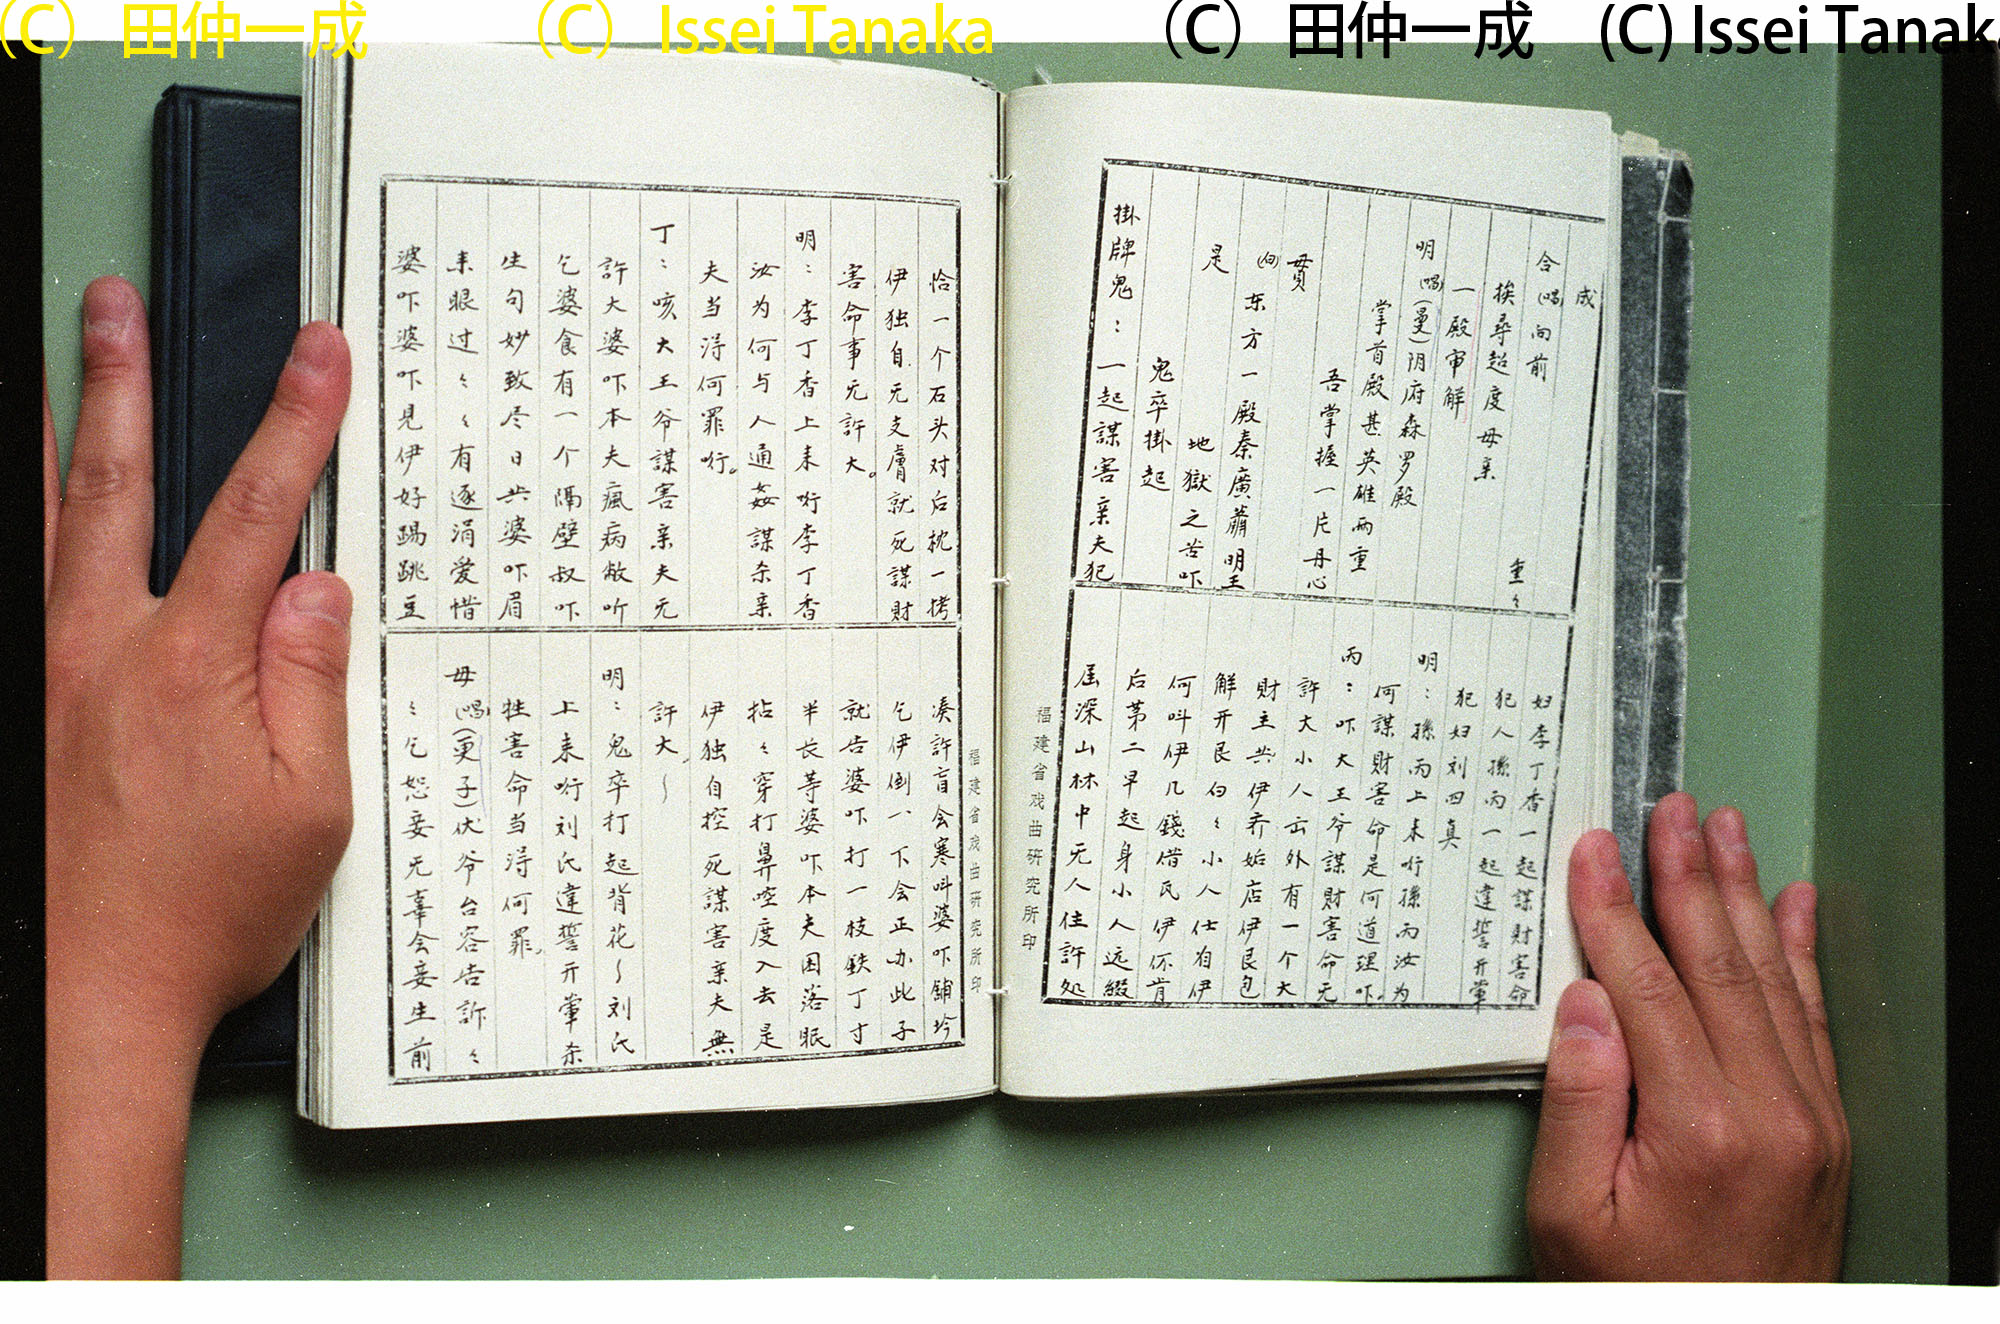 (C) 田仲一成
(C) Issei Tanaka
(C) 田仲一成
(C) Issei Tanak
成
合(唱)向前 重々
挨尋超度母亲
一殿审解
明(唱)(曼)阴府森罗殿
掌首殿甚英雄两重
吾掌握一片丹心
貫
(白)东方一殿秦廣蕭明王
是
地獄之苦吓
鬼卒掛起
掛牌鬼：一起謀害亲夫犯
妇李丁香一起謀財害命
犯人孫丙一起違誓开葷
犯妇刘四真
明：孫丙上来听孫丙汝为
何謀財害命是何道理吓。
丙：吓大王爷謀財害命无
許大小人出外有一个大
財主共伊乔姤店伊艮包
解开艮白々小人仕伯伊
何叫伊几錢借瓦伊伓肯
后第二早起身小人远綴
屈深山林中无人住許処
福建省戏曲研究所印
恰一个石头对后枕一拷
伊独自无支膚就死謀財
害命事无許大。
明：李丁香上来听李丁香
汝为何与人通姦謀杀亲
夫当得何罪听。
丁：咳大王爷謀害亲夫无
許大婆吓本夫瘋病敝听
乞婆食有一个隔壁叔吓
生句妙致尽日共婆吓眉
来眼过々々有逐涓爱惜
婆吓婆吓見伊好踢跳豆
凑許盲会寒叫婆吓鋪坽
乞伊倒一下会正办此子
就告婆吓打一枝鉄丁寸
半长等婆吓本夫困落眠
拈々穿打鼻空度入去是
伊独自控死謀害亲夫無
許大～
明：鬼卒打起背花～刘氏
上来听刘氏違誓开葷杀
牲害命当得何罪。
母(唱)(更子)伏爷台容告訴々
々乞恕妾无辜会妾生前
福建省戏曲研究所印